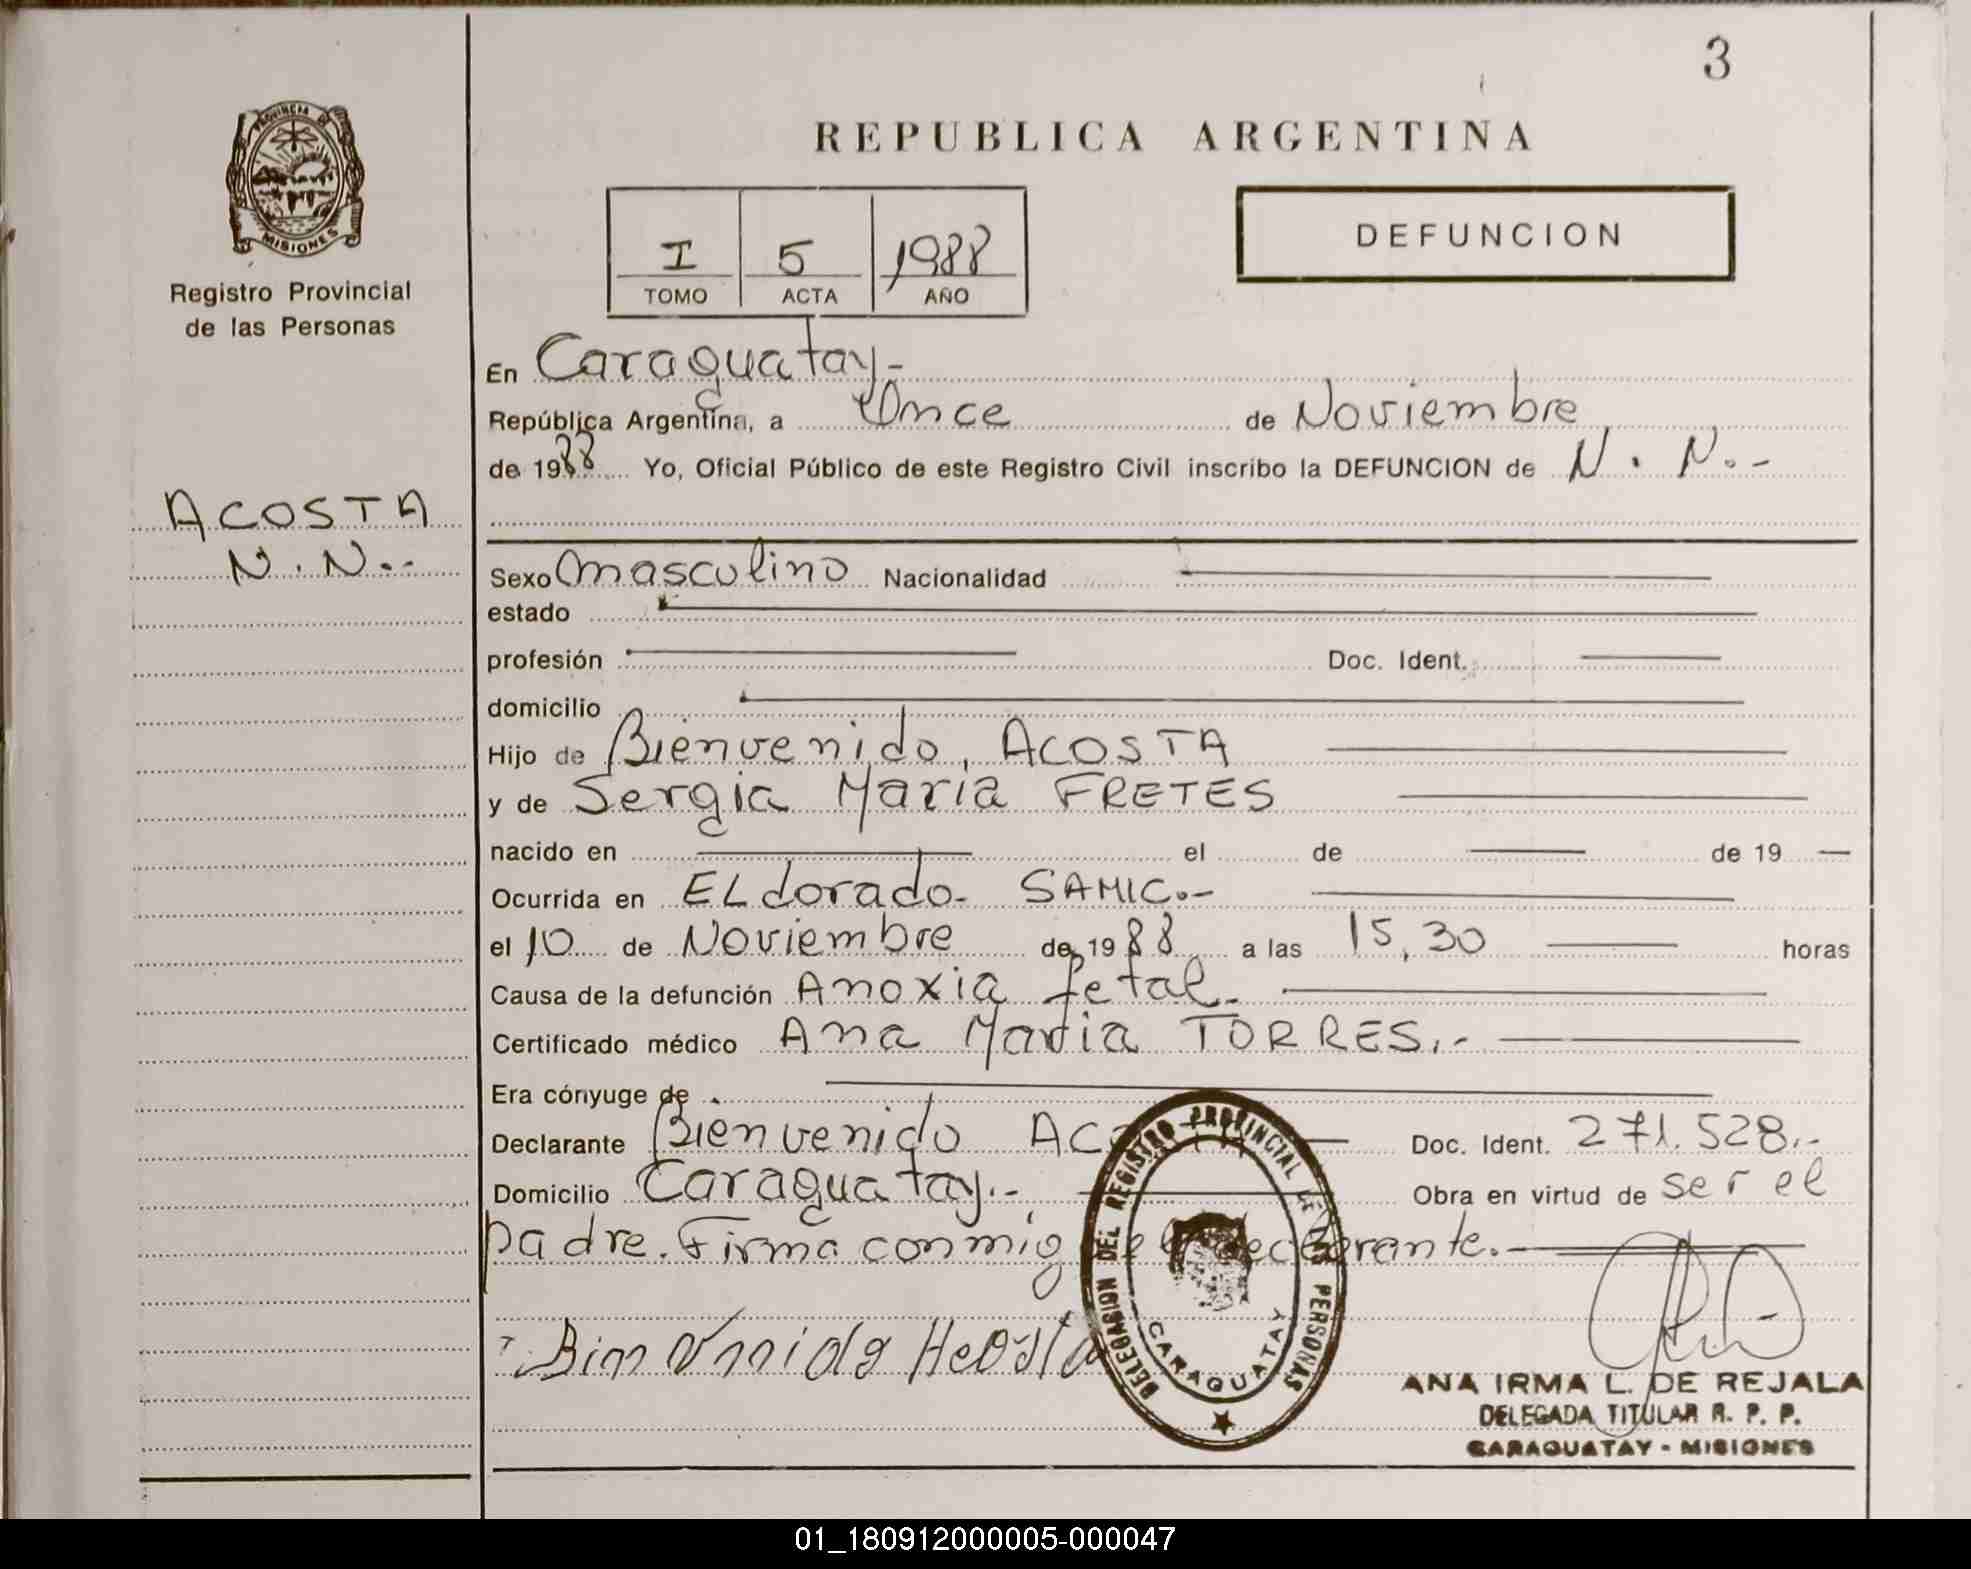 3
PROVINCIA DE
MISIONES
Registro Provincial
de las Personas
ACOSTA
N. N.-
REPUBLICA ARGENTINA
I 5 1988
TOMO ACTA AÑO
DEFUNCION
En Caraguatay-
República Argentina, a Once de Noviembre
de 1988 Yo, Oficial Público de este Registro Civil inscribo la DEFUNCION de N. N.-
Sexo masculino Nacionalidad
estado
profesión Doc. Ident.
domicilio
Hijo de Bienvenido, ACOSTA
y de Sergia Maria FRETES
nacido en el de de 19
Ocurrida en ELdorado- SAMIC.-
el 10 de Noviembre de 1988 a las 15,30 horas
Causa de la defunción Anoxia fetal.
Certificado médico Ana Maria TORRES.-
Era cónyuge de
Declarante Bienvenido ACOSTA Doc. Ident. 271.528.-
Domicilio Caraguatay.- Obra en virtud de ser el
padre. Firma conmigo el declarante.-
DELEGACION DEL REGISTRO PROVINCIAL DE LAS PERSONAS
CARAGUATAY
ANA IRMA L. DE REJALA
DELEGADA TITULAR R. P. P.
CARAGUATAY - MISIONES
01_180912000005-000047